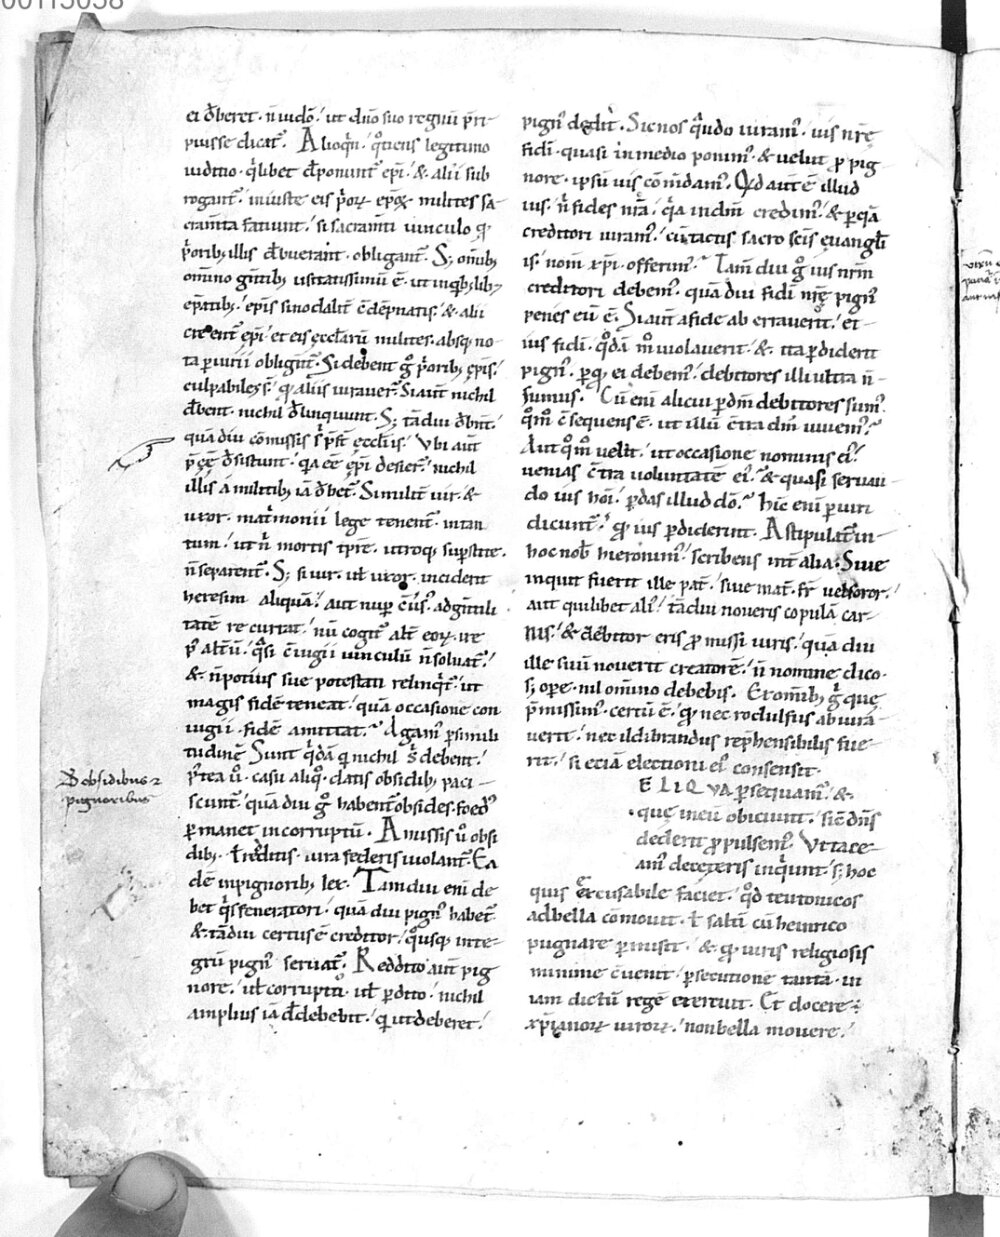 00113038
ei dẜberet · ñ uideo · ut dño suo regnum p̃ri
puisse dicat᷒ . Alioqñ · q̊tiens legitimo
iuditio · q̃libet dẜponunt᷒ ep̃i · & alii sub
rogant᷒ · iniuste eis p̃orꝝ ep̃oꝝ milites sa
cramta faciunt · si sacramti uinculo q̊
p̃orib; illis dẜbuerant · obligant᷒ . S; om̃ib;
omnino gentib; usitatissimũ ẽ · ut
ep̃atib; · ep̃is sinodalit̃ c̃dẽpnatis · & alii
creent᷒ ep̃i · et eis ecclarũ milites · absq; no
ta piurii obligent᷒ . Si debent g̊ p̃orib; ep̃is ·
culpabiles s̃ · q̊ aliis iurauer̃ . Si aut̃ nichil
dẜbent · nichil dẜlinquunt . S; tãdiu dẜbnt ·
quã diu cõmissis s̃ p̃st̃ ecclis · Vbi aut̃
p̃ẽẽ dẜsistunt · q̃a ẽẽ ep̃i desier̃ · nichil
illis a militib; iã dẜbet᷒ . Similit̃ uir · &
uxor · mat̃monii lege tenent᷒ · intan
tum · ut ñ mortis tp̃re · utroq; sup̃stite ·
ñ separent᷒ . S; si uir · ut̃ uxor · incident
heresim aliquã · aut nup̃ c̃us᷒ · ad gentili
tatẽ recurrat · nũ cogit᷒ alt̃ eorꝝ · ire
p᷒ alt̃ũ · q̃si c̃iugii uinculũ ñ soluat᷒ ·
& ñ potius sue potestati relinq̃t᷒ · ut
magis fidẽ teneat · quã occasione con
iugii · fidẽ amittat · Agam᷒ p simili
tudinẽ Sunt q̃dã q̃ nichil s̃ debent ·
p̃tea ũ · casu aliq̊ · datis obsidib; paci
scunt᷒ · quã diu g̊ habent᷒ obsides · foed᷒
p̱manet incorruptũ . Amissis ũ obsi
dib; · t̃ redditis · iura federis uiolant᷒ . Ea
dẽ in pignorib; lex . Tamdiu eni de
bet q̃s feneratori · quã diu pign᷒ habet᷒
& tãdiu certus ẽ creditor · q̊usq; inte
grũ pign᷒ seruat᷒ . Reddito aut̃ pig
nore · ut̃ corrupto · ut̃ pdito · nichil
amplius iã dẜdebebit · q̊ ut deberet ·
D̃ obsidibus ⁊
pignoribus
pign᷒ dedit . Sic nos q̃ndo iuram᷒ · uis nrẽ
fidi · quasi in medio ponim᷒ · & uelut p̱ pig
nore · ipsũ uis cõm̃dam᷒ . Qd autẽ ẽ illud
ius · ñ fides nr̃a · q̃a in dñm credim᷒ · & p̱ q̃a
creditori iuram᷒ · cũ tactis sacro sc̃is euangl̃i
is · nom̃ xp̃i · offerim᷒ . Tam diu g̊ ius nr̃m
creditori debem᷒ · quã diu fidi nrẽ pign᷒
penes eũ ẽ . Si aut̃ a fide ab errauerit · et
ius fidi · q̊dã m̊ uiolauerit · & ita p̱diderit
pign᷒ · p̱ q; ei debem᷒ · debitores illi ultra ñ
sumus . Cũ eni alicui p̱ dm̃ debitores sum᷒
q̊m̊ c̃sequens ẽ · ut illũ c̃tra dm̃ iuuem᷒ ·
Aut q̊m̊ uelit · ut occasione nominis ei᷒
uenias c̃tra uoluntatẽ ei᷒ · & quasi seruan
do uis nõi · p̱das illud dõ · Hinc eni p̱ iuri
dicunt᷒ · q̊ ius p̱diderunt . Astipulat᷒ in
hoc nob̃ hieronim᷒ · scribens int̃ alia · Siue
inquit fuerit ille pat̃ · siue mat̃ · fr̃ uel soror ·
aut quilibet ali᷒ · tãdiu noueris copulã car
nis · & debitor eris p̱missi iuris · quã diu
ille suũ nouerit creatorẽ · ñ nomine dico ·
s; ope · nil om̃ino debebis . Ex om̃ib; g̊ quę
p̃missim᷒ · certũ ẽ · q̊ nec rodulfus ab iura
uerit · nec ildibrandus rep̃hensibilis fue
rit · si eciã electioni ei᷒ consensit ·
ELIQVA p̱sequam᷒ · &
quę ineũ obiciunt · sic dñs
dederit p̱pulsem᷒ . Vt tace
am deceteris inq̃unt · s; hoc
quis excusabile faciet · q̊d teutonicos
ad bella cõmouit · t̃ saltũ cũ heinrico
pugnare p̱misit · & q̊ uiris religiosis
minime c̃uenit · p̱secutione tanta · in
iam dictũ regẽ exercuit . Et docere ·
xp̃ianorꝝ uirorꝝ · non bella mouere ·